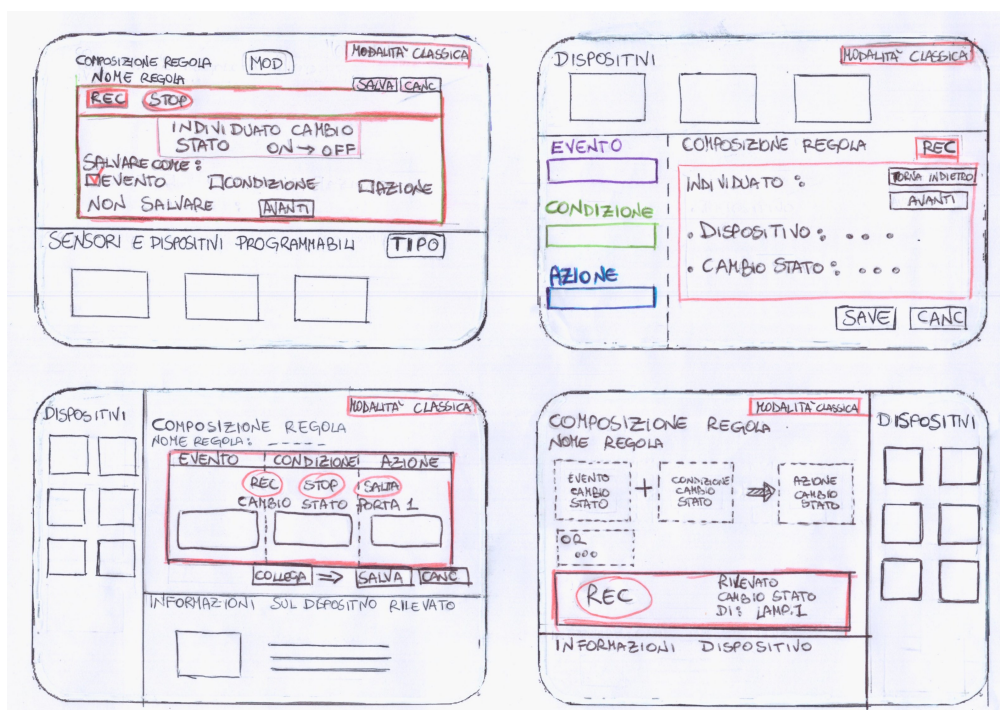 MODALITA' CLASSICA
COMPOSIZIONE REGOLA
MOD
NOME REGOLA
SALVA CANC
REC STOP
INDIVIDUATO CAMBIO
STATO ON → OFF
SALVARE COME:
EVENTO CONDIZIONE AZIONE
NON SALVARE AVANTI
SENSORI E DISPOSITIVI PROGRAMMABILI TIPO
DISPOSITIVI
MODALITA' CLASSICA
EVENTO
CONDIZIONE
AZIONE
COMPOSIZIONE REGOLA REC
INDIVIDUATO:
TORNA INDIETRO
AVANTI
• DISPOSITIVO: ...
• CAMBIO STATO: ...
SAVE CANC
DISPOSITIVI
MODALITA' CLASSICA
COMPOSIZIONE REGOLA
NOME REGOLA: -----
EVENTO CONDIZIONE AZIONE
REC STOP SALTA
CAMBIO STATO PORTA 1
COLLEGA ⇒ SALVA CANC
INFORMAZIONI SUL DISPOSITIVO RILEVATO
MODALITA' CLASSICA
COMPOSIZIONE REGOLA
NOME REGOLA
EVENTO
CAMBIO
STATO
+
CONDIZIONE
CAMBIO
STATO
⇒
AZIONE
CAMBIO
STATO
OR
...
REC
RILEVATO
CAMBIO STATO
DI: LAMP.1
INFORMAZIONI DISPOSITIVO
DISPOSITIVI